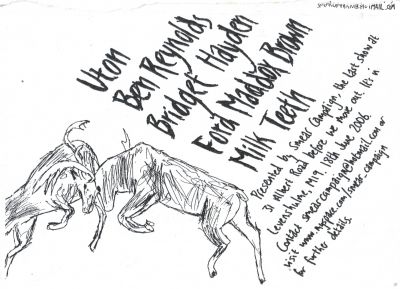 Uton
Ben Reynolds
Bridget Hayden
Ford Maddox Brown
Milk Teeth
Presented by Smear Campaign, the last show at
31 Albert Road before we move out. It's in
Levenshulme, M19, 18th June 2006.
Contact smearcampaign@hotmail.com or
visit www.myspace.com/smear-campaign
for further details.